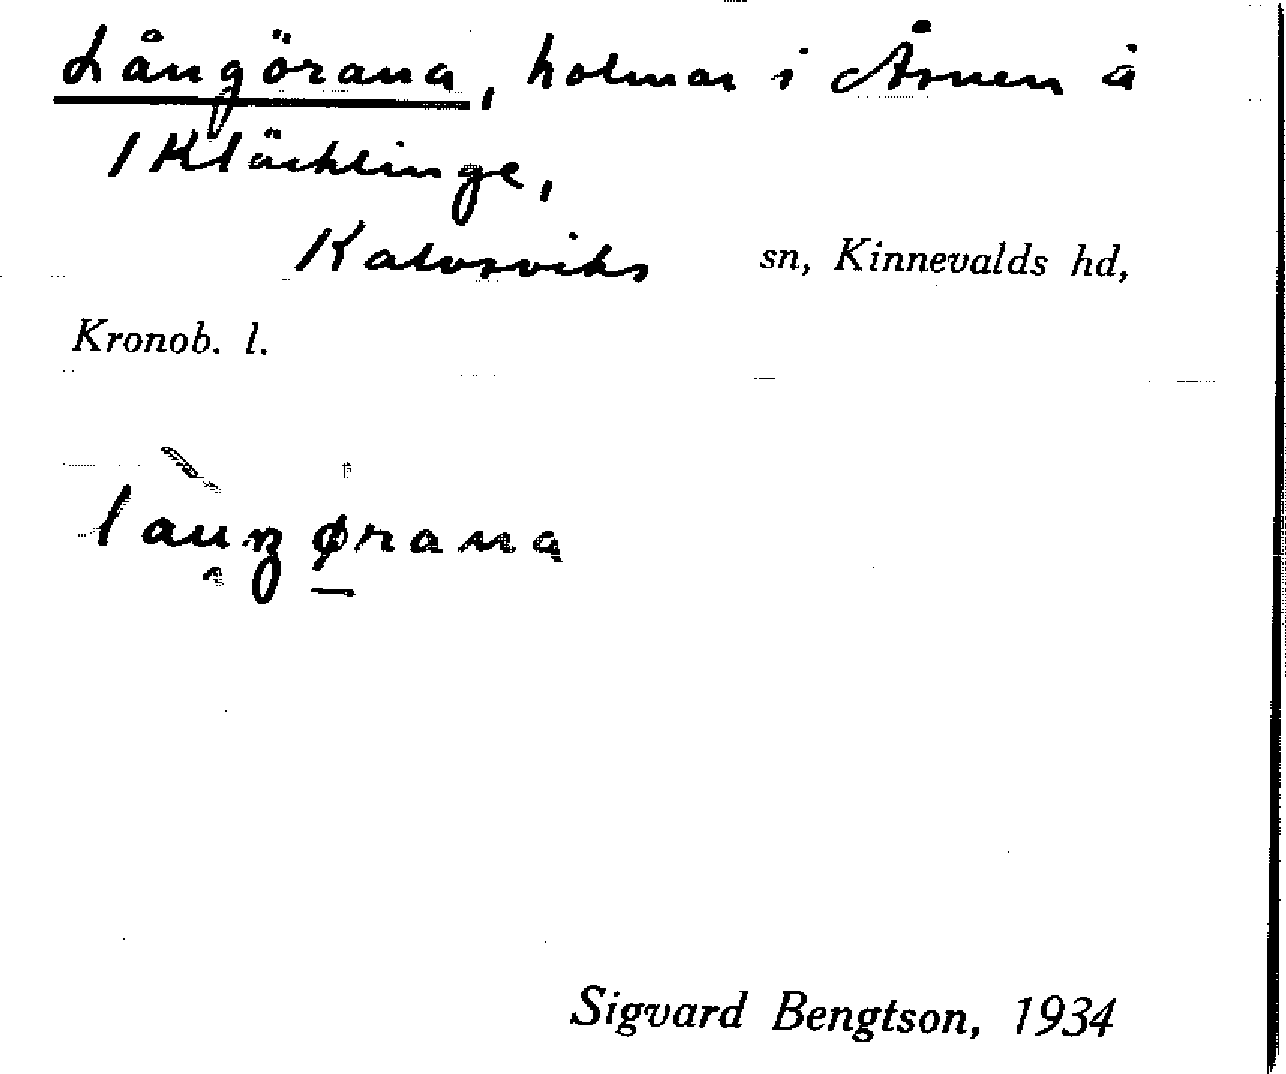 Långörana, holmar i Åsnen å
Kläcklinge,
Kalvsviks sn, Kinnevalds hd,
Kronob. l.
lauŋørana
Sigvard Bengtson, 1934